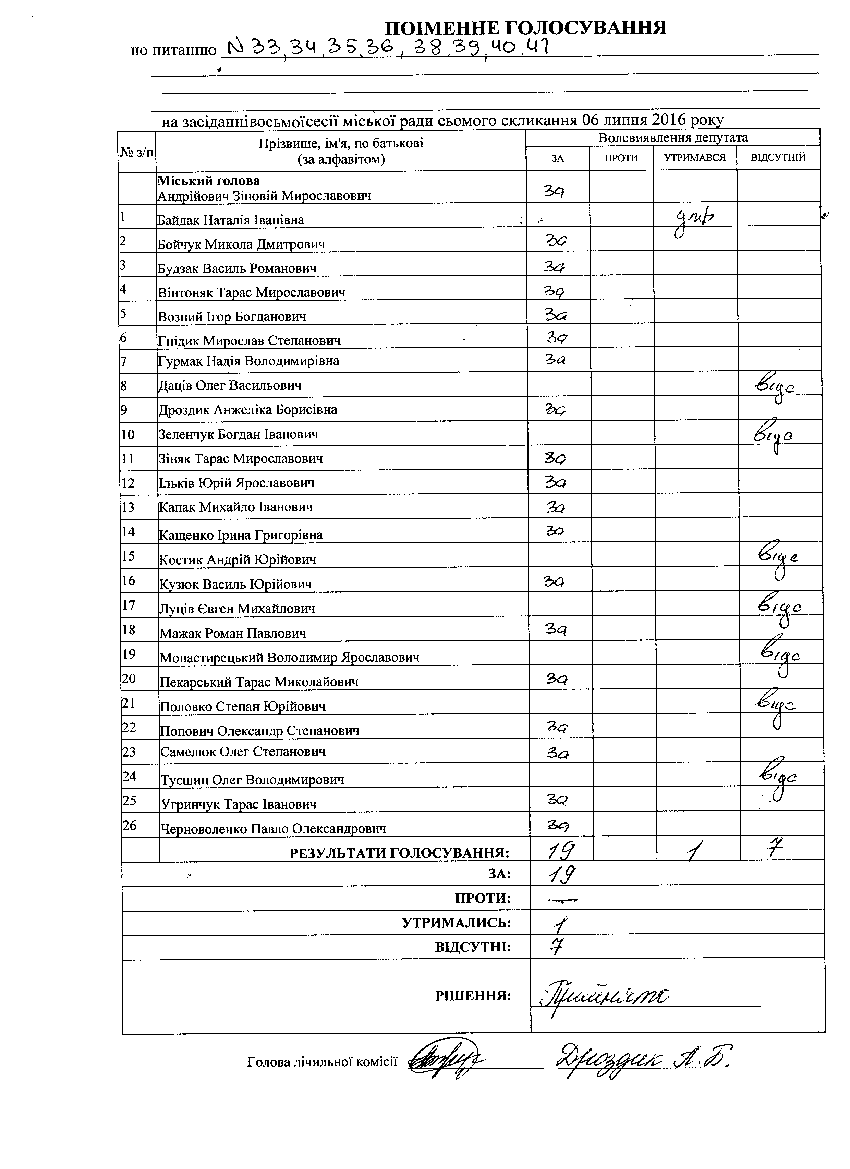 ПОІМЕННЕ ГОЛОСУВАННЯ
по питанню N 33, 34, 35, 36, 38, 39, 40, 41
на засіданнівосьмоїсесії міської ради сьомого скликання 06 липня 2016 року
№ з/п Прізвище, ім'я, по батькові (за алфавітом) Волевиявлення депутата
ЗА ПРОТИ УТРИМАВСЯ ВІДСУТНІЙ
Міський голова
Андрійович Зіновій Мирославович за
1 Байцак Наталія Іванівна утр
2 Бойчук Микола Дмитрович за
3 Будзак Василь Романович за
4 Вінтоняк Тарас Мирославович за
5 Возний Ігор Богданович за
6 Гнідик Мирослав Степанович за
7 Гурмак Надія Володимирівна за
8 Даців Олег Васильович відс
9 Дроздик Анжеліка Борисівна за
10 Зеленчук Богдан Іванович відс
11 Зіняк Тарас Мирославович за
12 Ільків Юрій Ярославович за
13 Капак Михайло Іванович за
14 Кащенко Ірина Григорівна за
15 Костик Андрій Юрійович відс
16 Кузюк Василь Юрійович за
17 Луців Євген Михайлович відс
18 Мажак Роман Павлович за
19 Монастирецький Володимир Ярославович відс
20 Пекарський Тарас Миколайович за
21 Половко Степан Юрійович відс
22 Попович Олександр Степанович за
23 Самелюк Олег Степанович за
24 Олег Володимирович відс
25 Угринчук Тарас Іванович за
26 Черноволенко Павло Олександрович за
РЕЗУЛЬТАТИ ГОЛОСУВАННЯ: 19 1 7
ЗА: 19
ПРОТИ: —
УТРИМАЛИСЬ: 1
ВІДСУТНІ: 7
РІШЕННЯ: Прийнято
Голова лічильної комісії Дроздик А.Б.